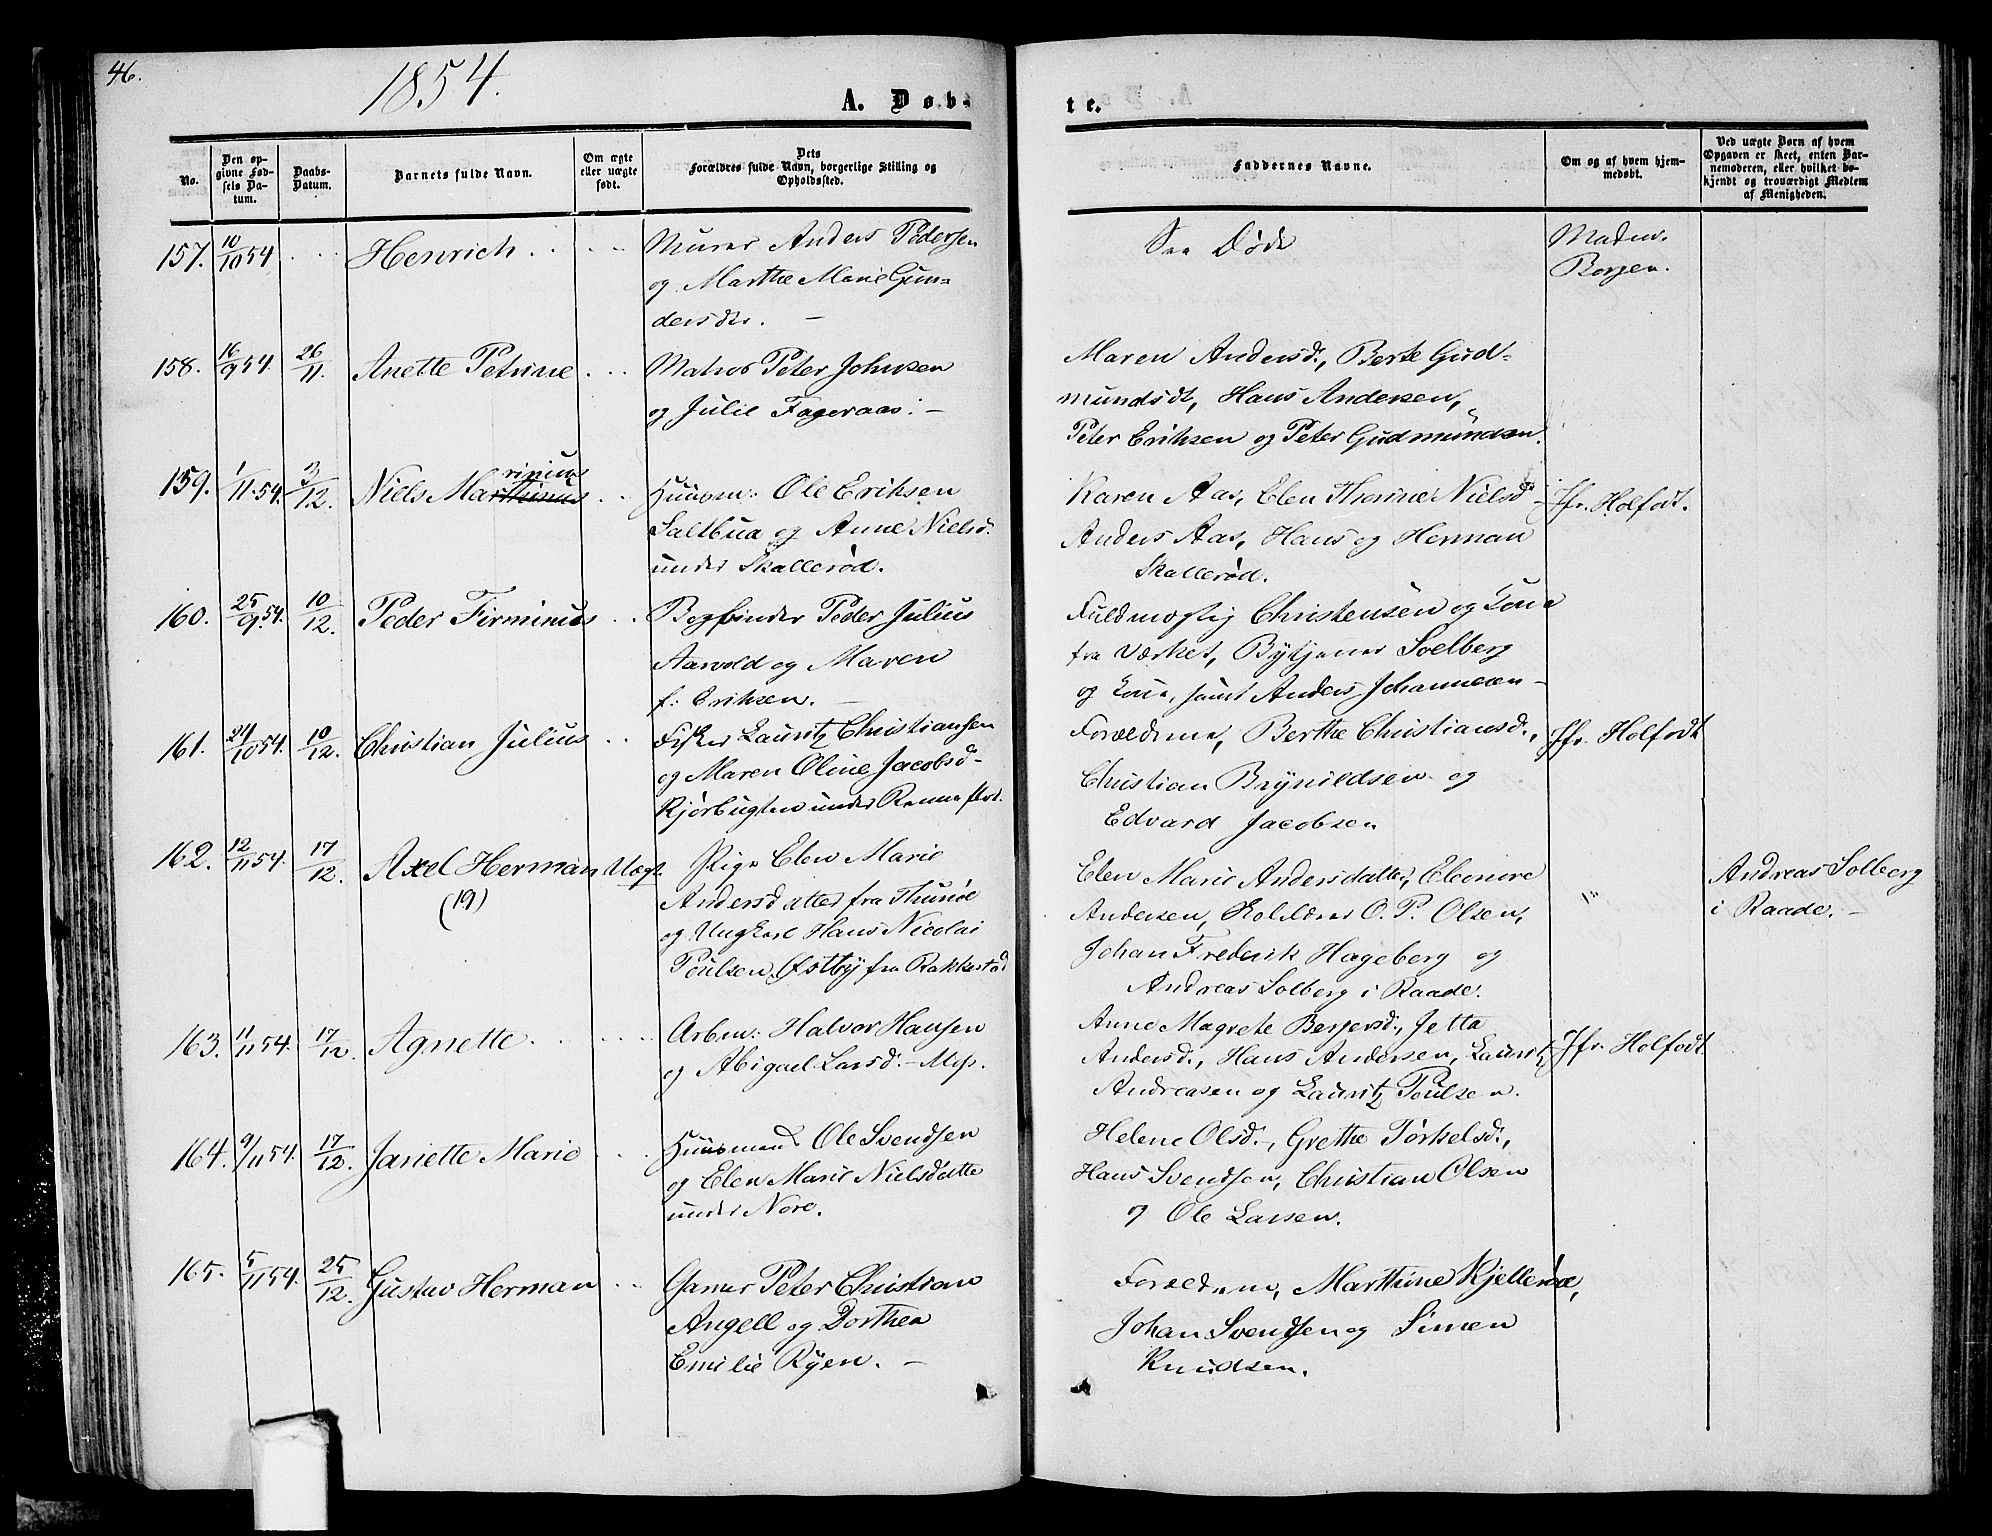 46.
1854.
A. Døb-
te.
No.
Den op-
givne Fød-
sels Da-
tum.
Daabs-
Datum.
Barnets fulde Navn.
Om ægte
eller uægte
født.
Dets
Forældres fulde Navn, borgerlige Stilling og
Opholdssted.
Faddernes Navne.
Om og af hvem hjem-
medøbt.
Ved uægte Børn af hvem
Opgaven er skeet, enten Bar-
nemoderen, eller hvilket be-
kjendt og troværdigt Medlem
af Menigheden.
157. 10/10 54 Henrich
Murer Anders Pedersen
og Marthe Marie Gun-
dersdtr. —
See Døde
Madm.
Borgen.
158. 16/9 54 26/11. Anette Petrine
Matros Peter Johnsen
og Julie Fageraas. —
Maren Andersd., Berte Gud-
mundsdt, Hans Andersen,
Peter Eriksen og Peter Gudmundsen.
159. 1/11 54. 3/12. Niels Marthinus
rinius
Huusm: Ole Eriksen
Saltbua og Anne Nielsd.
under Skallerød.
Karen Aas, Elen Thorine Nielsd
Anders Aas, Hans og Herman
Skallerød.
Jfr. Holfodt.
160. 25/9 54. 10/12. Peder Firminus
Bogbinder Peder Julius
Aarvold og Maren
f: Eriksen. —
Fuldmægtig Christensen og Kone
fra Værket, Bytjener Solberg
og Kone, samt Anders Johannesen —
161. 24/10 54. 10/12. Christian Julius
Fisker Lauritz Christiansen
og Maren Oline Jacobsd-
Kjørbugten under
Forældrene, Berthe Christiansd.,
Christian Brynildsen og
Edvard Jacobsen
Jfr. Holfodt
162. 12/11 54. 17/12. Axel Herman Uægt.
(19)
Pige Elen Marie
Andersdatter fra Thunøe
og Ungkarl Hans Nicolai
Poulsen Østby fra Rakkestad
Elen Marie Andersdatter, Elenore
Andersen, O. P. Olsen,
Johan Frederik Hageberg og
Andreas Solberg i Raade.
Andreas Solberg
i Raade. —
163. 11/11 54. 17/12. Agnette
Arbm: Halvor Hansen
og Abigael Larsd. — Mos.
Anne Magrete Bergersd., Jetta
Andersd., Hans Andersen, Lauritz
Andreasen og Lauritz Poulsen.
Jfr. Holfodt
164. 9/11 54. 17/12. Janette Marie
Huusmand Ole Svendsen
og Elen Marie Nielsdatte
under Nore.
Helene Olsd., Grethe Torkelsd.,
Hans Svendsen, Christian Olsen
og Ole Larsen.
165. 5/11 54. 25/12. Gustav Herman
Garver Peter Christian
Angell og Dorthea
Emilie Ryen. —
Forældrene, Marthine Kjellerød,
Johan Svendsen og Simen
Knudsen.